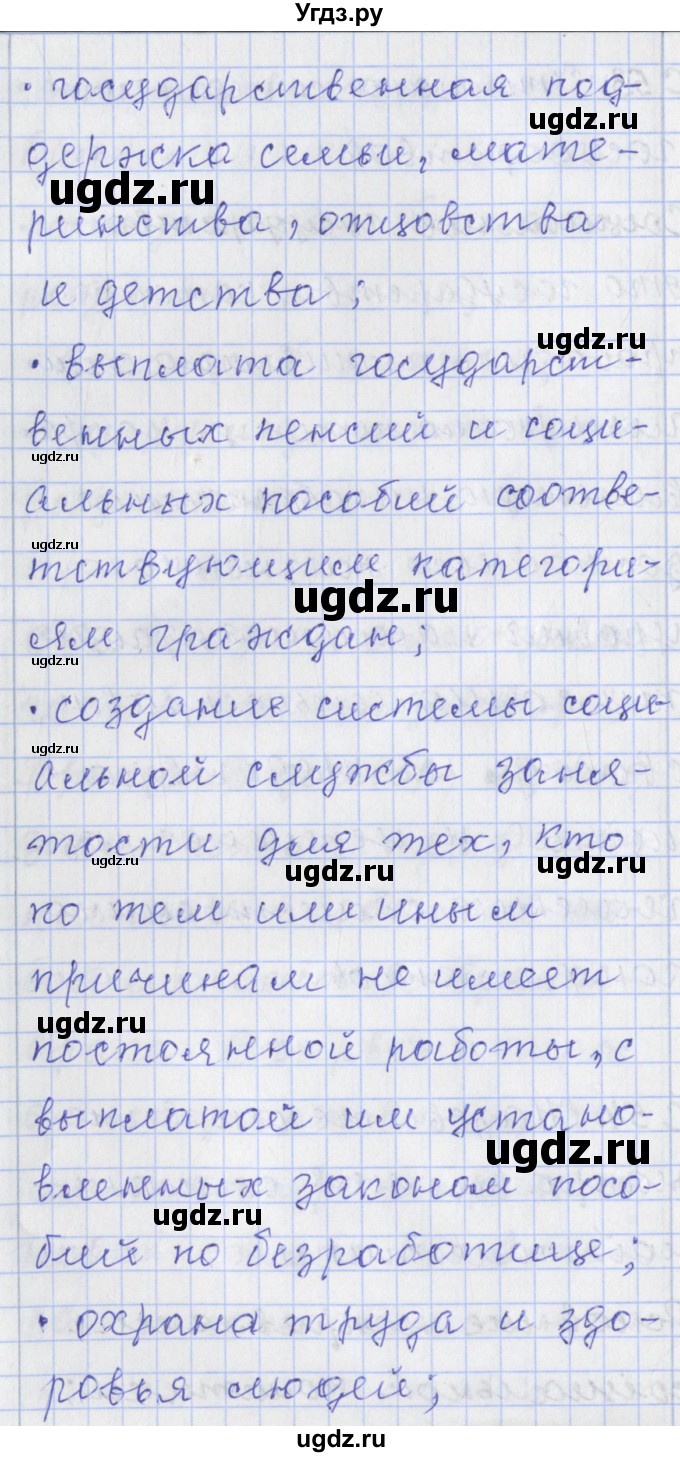 Угдз.ру
• государственная под-
держка семьи, мате-
ринства, отцовства
и детства;
• выплата государст-
венных пенсий и соци-
альных пособий соотве-
тствующим категори-
ям граждан;
• создание системы соци-
альной службы заня-
тости для тех, кто
по тем или иным
причинам не имеет
постоянной работы, с
выплатой им устано-
вленных законом посо-
бий по безработице;
• охрана труда и здо-
ровья людей;
ugdz.ru
ugdz.ru
ugdz.ru
ugdz.ru
ugdz.ru
ugdz.ru
ugdz.ru
ugdz.ru
ugdz.ru
ugdz.ru
ugdz.ru
ugdz.ru
ugdz.ru
ugdz.ru